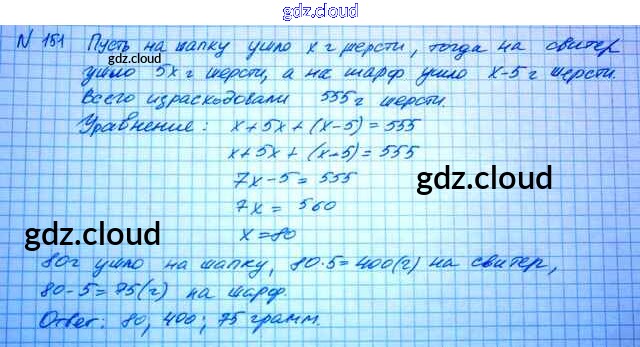 gdz.cloud
N 151 Пусть на шапку ушло x г шерсти, тогда на свитер
gdz.cloud
ушло 5x г шерсти, а на шарф ушло x-5 г шерсти.
Всего израсходовали 555 г шерсти.
Уравнение: x+5x+(x-5)=555
x+5x+(x-5)=555
gdz.cloud
7x-5=555
7x = 560
gdz.cloud
x=80
80г ушло на шапку, 80·5=400(г) на свитер,
80-5=75(г) на шарф.
Ответ: 80, 400; 75 грамм.
gdz.cloud